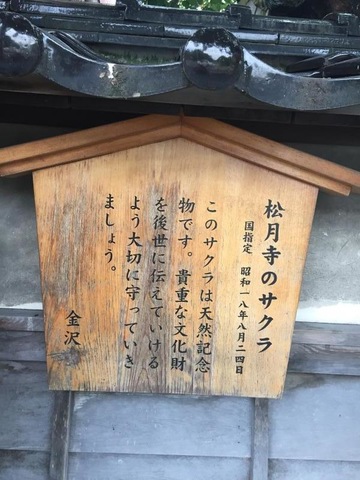 松月寺のサクラ
国指定 昭和一八年八月二四日
このサクラは天然記念
物です。貴重な文化財
を後世に伝えていける
よう大切に守っていき
ましょう。
金沢